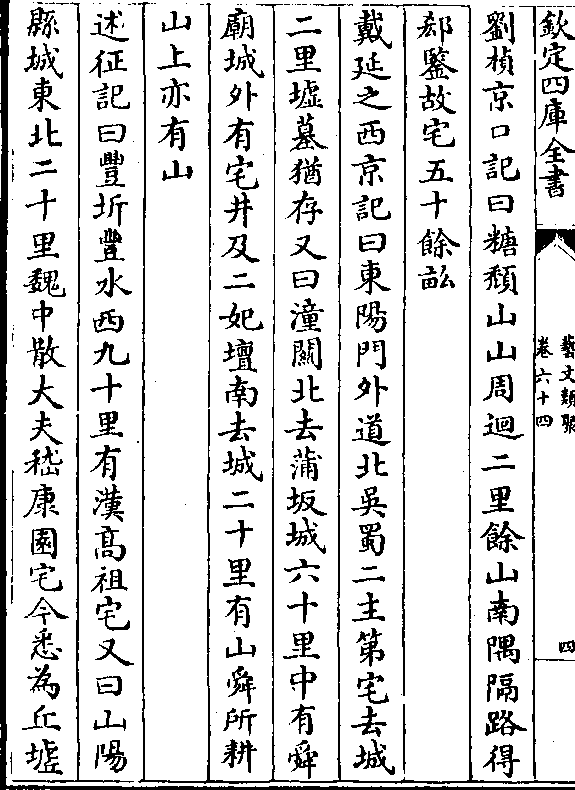 欽定四庫全書
藝文類聚
卷六十四
四
劉楨京口記曰糖頹山山周迴二里餘山南隅隔路得
郄鑒故宅五十餘畝
戴延之西京記曰東陽門外道北吳蜀二主第宅去城
二里墟墓猶存又曰潼關北去蒲坂城六十里中有舜
廟城外有宅井及二妃壇南去城二十里有山舜所耕
山上亦有山
述征記曰豐圻豐水西九十里有漢高祖宅又曰山陽
縣城東北二十里魏中散大夫嵇康園宅今悉為丘墟